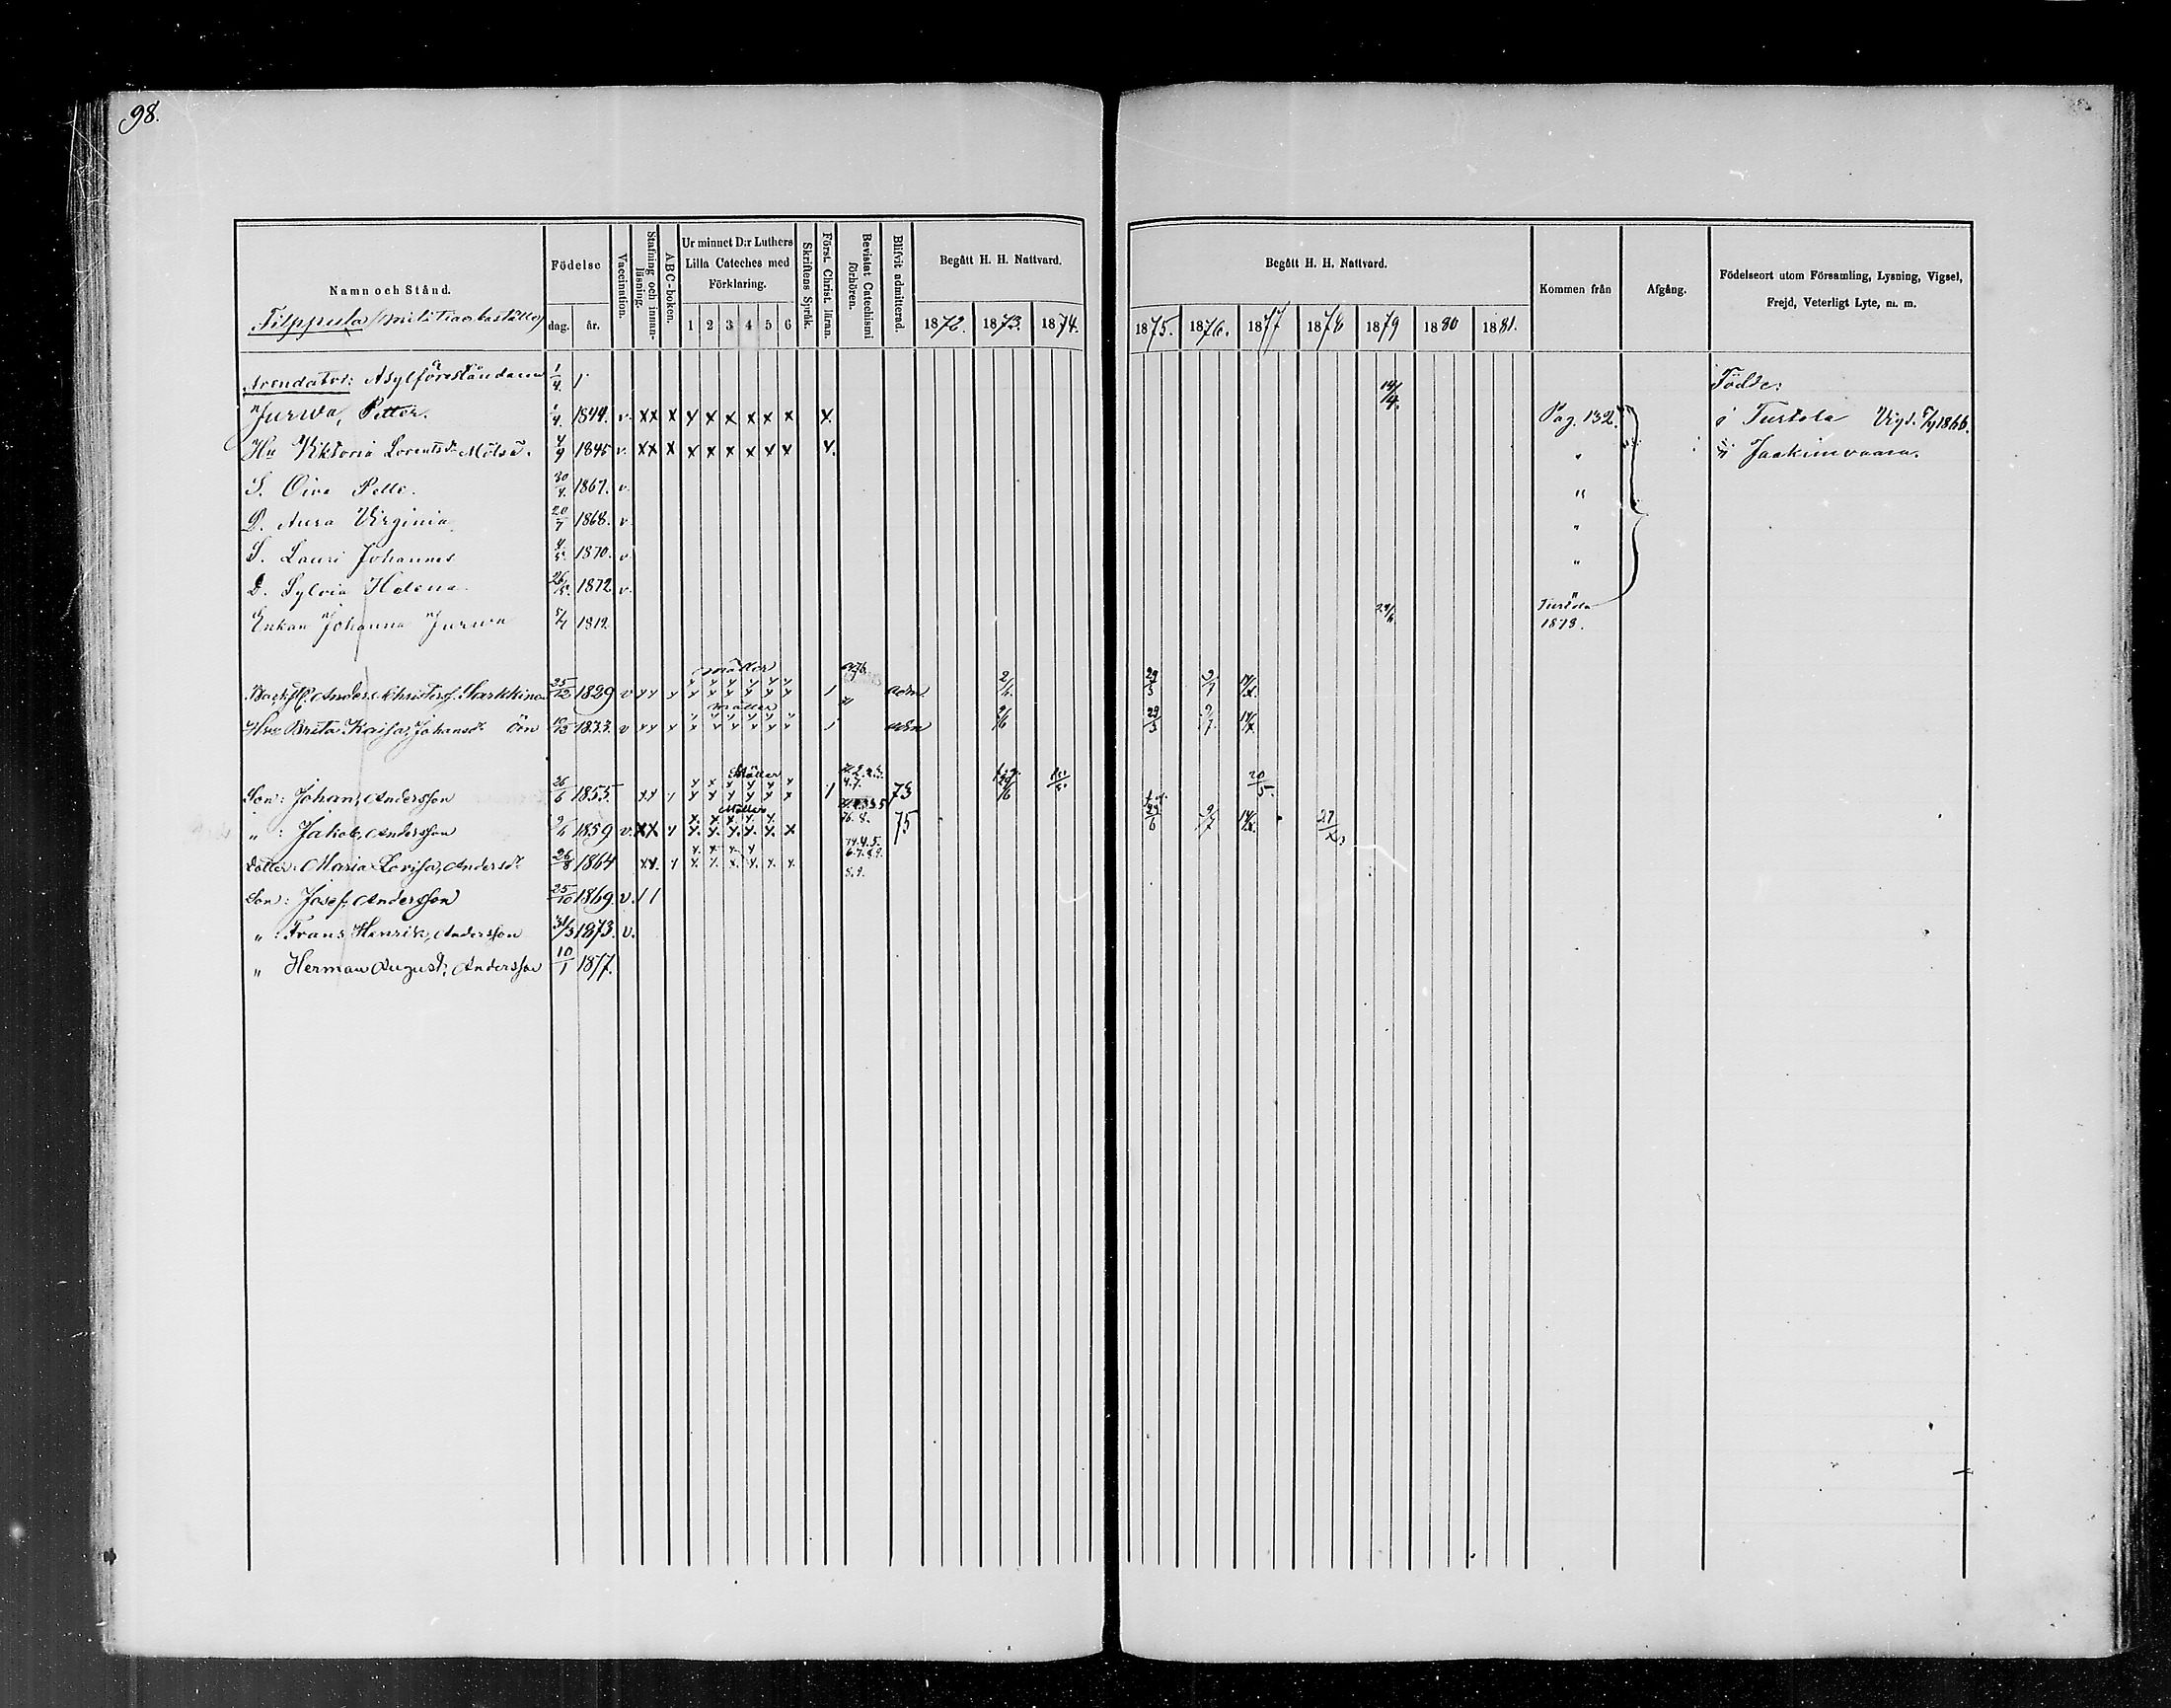 98.
Namn och Stånd.
Filppula /militiaeboställe/
Födelse
dag. år.
Vaccination.
Stafning och innan-läsning.
ABC-boken.
Ur minnet D:r Luthers Lilla Cateches med Förklaring.
1 2 3 4 5 6
Skriftens Språk.
Först. Christ. läran.
Bevistat Catechismi förhören.
Blifvit admitterad.
Begått H. H. Nattvard.
1872. 1873. 1874.
Begått H. H. Nattvard.
1875. 1876. 1877 1878 1879 1880 1881.
Kommen från
Afgång.
Födelseort utom Församling, Lysning, Vigsel, Frejd, Veterligt Lyte, m. m.
Arendator: Asylföreståndaren 1/4. 14/4. Födde:
Jurwa, Petter. 1/4. 1844. v. x x x x x x x x x x. Pag. 132. i Turtola Vigd. 1866.
Hu Viktoria Lorentsdr Mölsä. 4/9 1845 v. x x x x x x x x x x. " Jaakimvaara.
S. Oiva Pelle. 30/4. 1867. v. "
D. Aura Virginia 20/7 1868. v. "
S. Lauri Johannes 1870. v "
D. Sylvia Helena. 26/5. 1872 v.
Enkan Johanna Jurwa 1819. 29/6 Turtola 1878.
måller
Anders Christersf. Harkkinen 25/12 1829 v x x x x x x x x x 1 adm 2/6 29/3 9/7 14/X.
måller
Hu Brita Kaisa, Johansdr Ön 10/12 1833. v x x x x x x x x x 1 adm 2/6 29/3 9/7. 14/X
Måller
Son: Johan, Andersson 26/6 1855 x x x x x x x x x 1 73 20/5.
Måller
" : Jakob, Andersson 9/6 1859 v. x x x x x x x x x 76. 8. 75 29/6 9/7 14/X. 27/X
Dotter: Maria Lovisa, Andersdr 26/8 1864 x x. x x x x x x x 74. 4. 5. 6. 7. 8. 9. 8. 9.
Son: Josef, Andersson 25/10 1869. v. 1 1
" : Frans Henrik, Andersson 31/3 1873. v.
" Herman August, Andersson 10/1 1877.